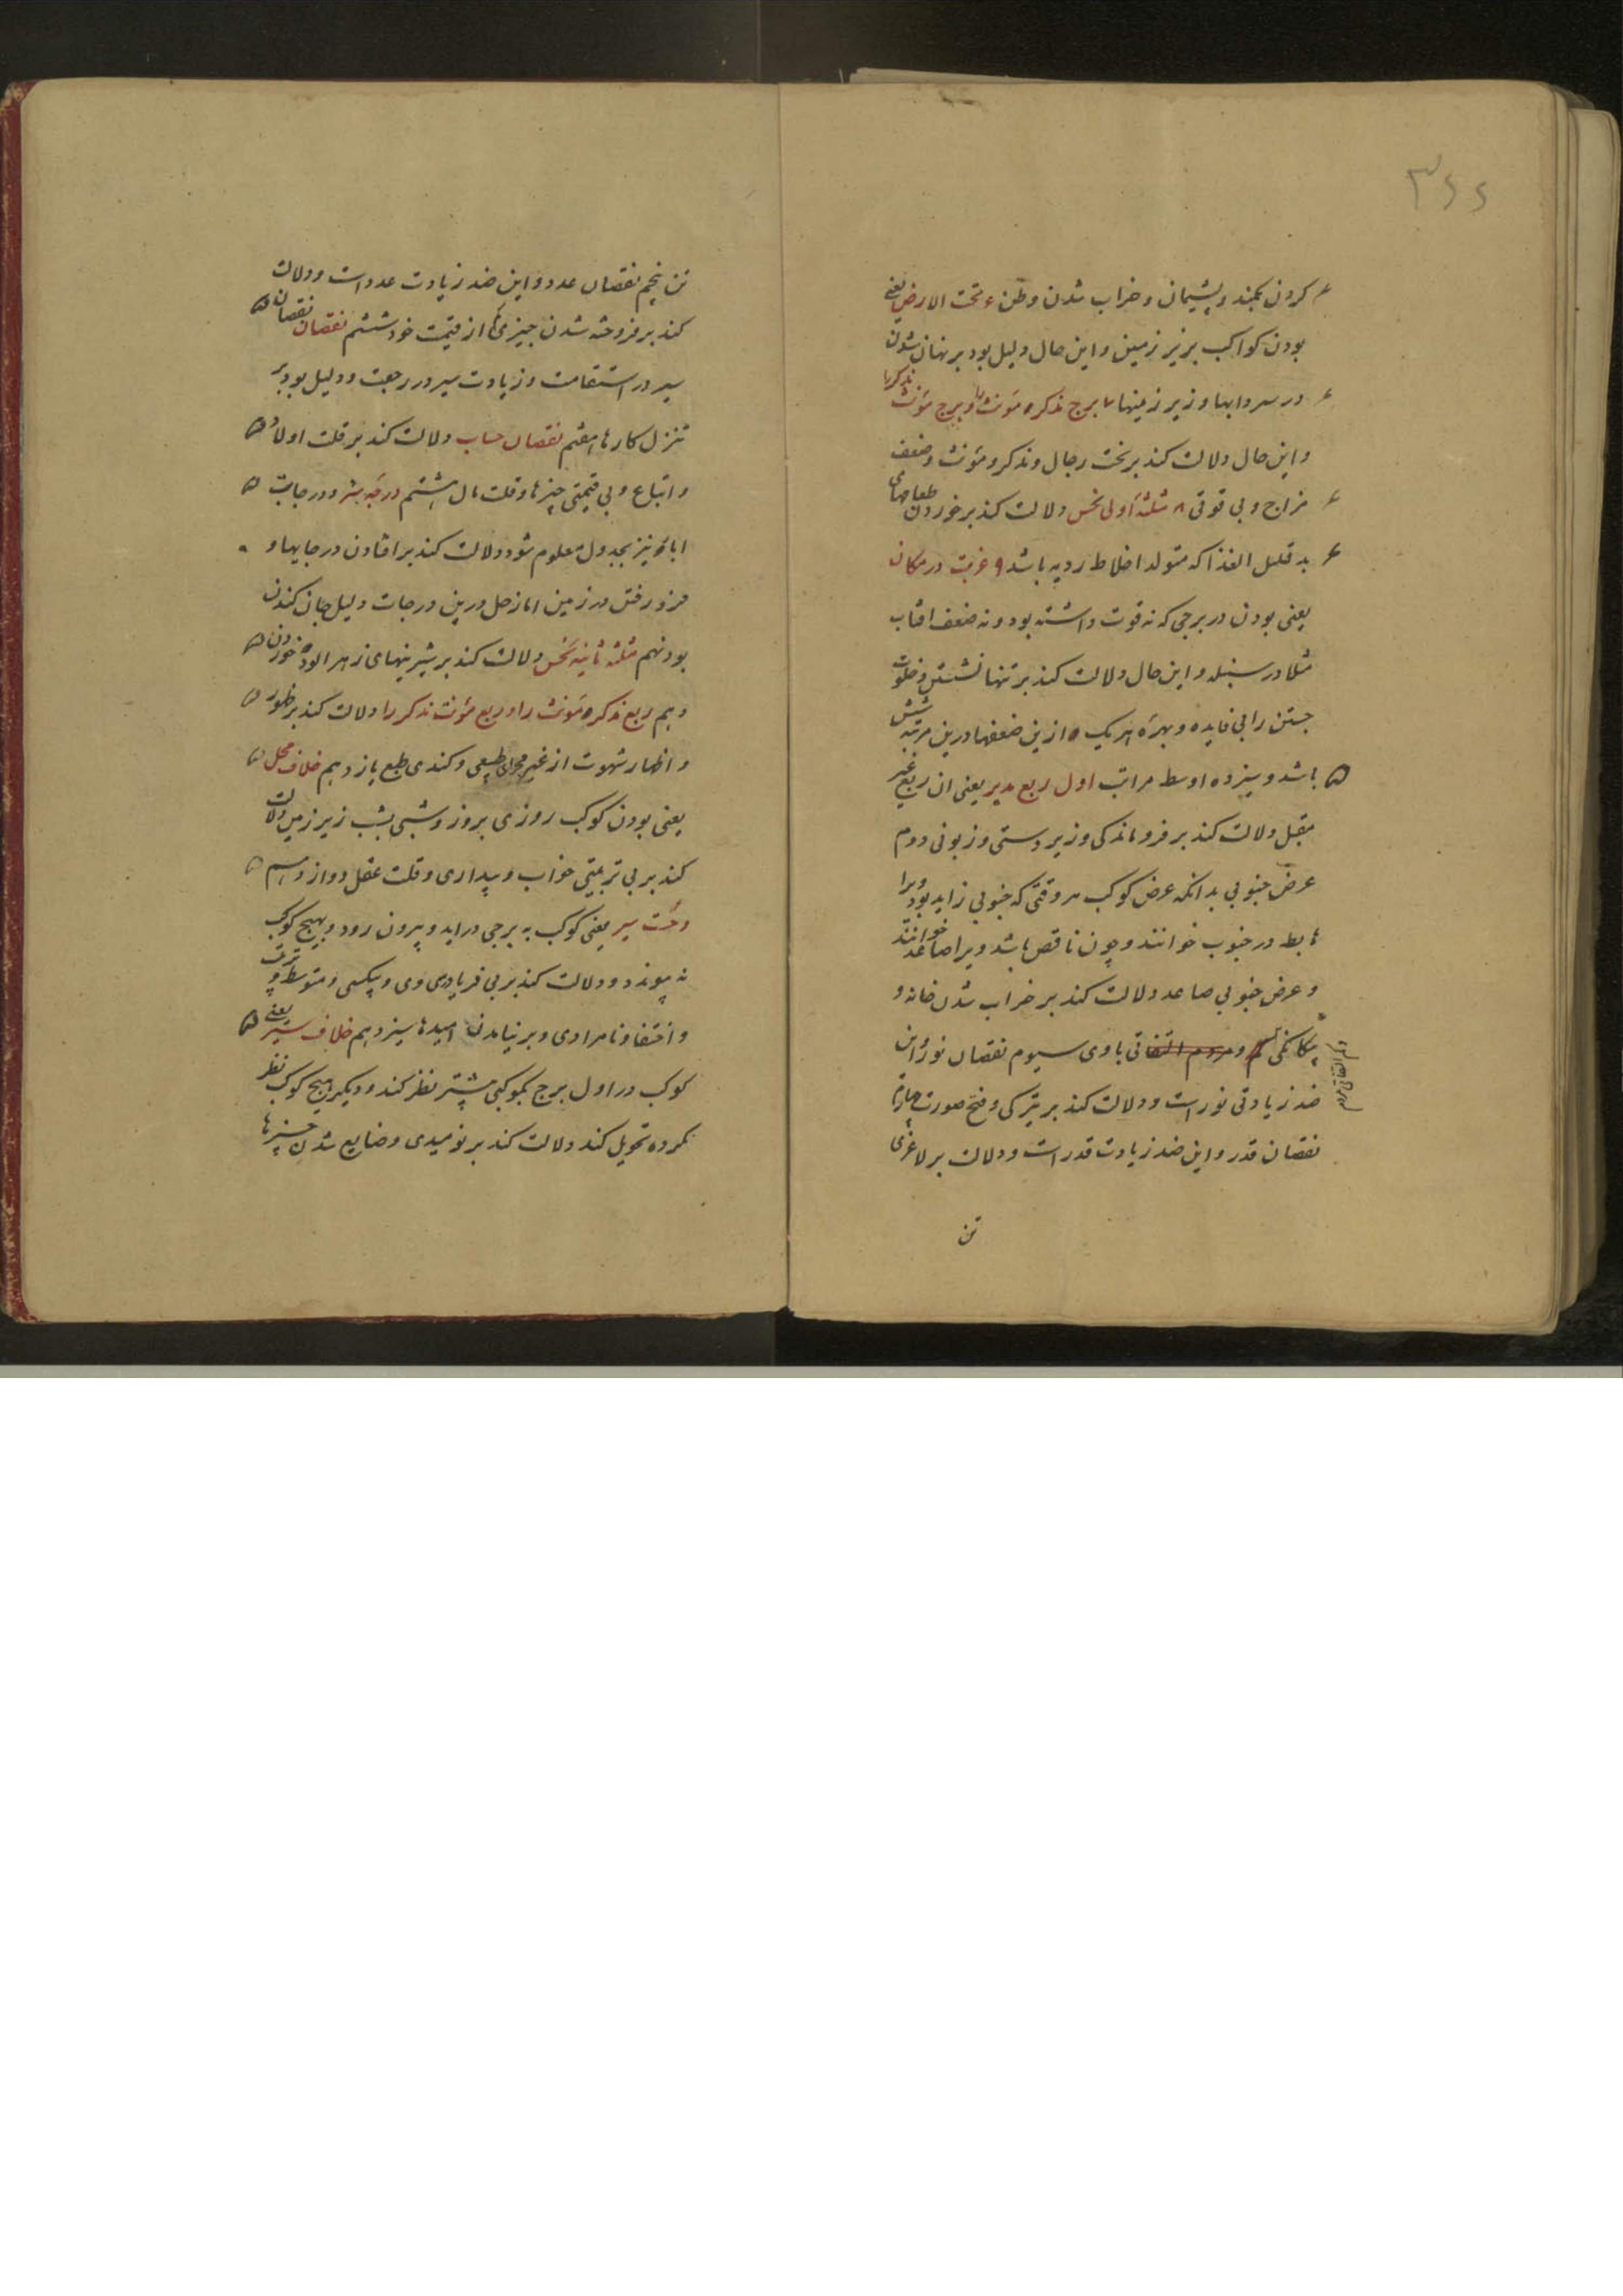 ۳۶۶
کردن بکمند و پشیمان و خراب شدن وطن ۶ تحت الارض یعنی
بودن کواکب بریز زمین و این حال دلیل بود بر نهان شدن
در سردابها و زیر زمینها ۷ برج مذکره مؤنث را و برج مؤنث مذکر را
و این حال دلالت کند بر تخت رجال و مذکر و مؤنث و ضعف
مزاج و بی قوتی ۸ مثلثه اولی نحس دلالت کند بر خوردن طعامهای
بد قلیل الغذا که متولد اخلاط ردیه باشد ۹ غربت در مکان
یعنی بودن در برجی که نه قوت داشته بود و نه ضعف افتاب
مثلا در سنبله و این حال دلالت کند بر تنها نشستن و خلوت
جستن را بی فایده و بهره هر یک ازین ضعفها درین مرتبه شش
باشد و سیزده اوسط مراتب اول ربع مدبر یعنی ان ربع غیر
مقبل دلالت کند بر فروماندکی و زیر دستی و زبونی دوم
عرض جنوبی بدانکه عرض کوکب هر وقتی که جنوبی زاید بود ویرا
هابط در جنوب خوانند و چون ناقص باشد ویرا صاعد خوانند
و عرض جنوبی صاعد دلالت کند بر خراب شدن خانه و
و مردم التفاتی با وی سیوم نقصان نور و این
ضد زیادتی نور است و دلالت کند بر تیرکی و قبح صورت چهارم
نقصان قدر و این ضد زیادت قدر است و دلالت بر لاغری
تن
تن پنجم نقصان عدد و این ضد زیادت عدد است و دلالت
کند بر فروخته شدن چیزی از قیمت خود ششم نقصان نقصان
سیر در استقامت و زیادت سیر در رجعت و دلیل بود بر
تنزل کارها هفتم نقصان حساب دلالت کند بر قلت اولاد
و اتباع و بی قیمتی چیزها و قلت مال هشتم درجه بئر و درجات
ابار نیز بجدول معلوم شود و دلالت کند بر افتادن در چایها و
فرو رفتن در زمین اما زحل درین درجات دلیل جان کندن
بود نهم مثلثه ثانیه نحس دلالت کند بر شیرینهای زهر الوده خوردن
دهم ربع مذکره مؤنث را و ربع مؤنث مذکر را دلالت کند بر ظهور
و اظهار شهوت از غیر مجرای طبیعی و کندی طبع یازدهم خلاف محل
یعنی بودن کوکب روزی بروز و شبی بشب زیر زمین دلالت
کند بر بی تربیتی خواب و بیداری و قلت عقل دوازدهم
وحشت سیر یعنی کوکب به برجی دراید و بیرون رود و بهیچ کوکب
نه پیوندد و دلالت کند بر بی فریادرسی وی و بیکسی و متوسط
و اختفا و نامرادی و برنیامدن امیدها سیزدهم خلاف سیر یعنی
کوکب در اول برج بکوکبی پیشتر نظر کند و دیکر بهیچ کوکب نظر
نکرده تحویل کند دلالت کند بر نومیدی و ضایع شدن چیزها